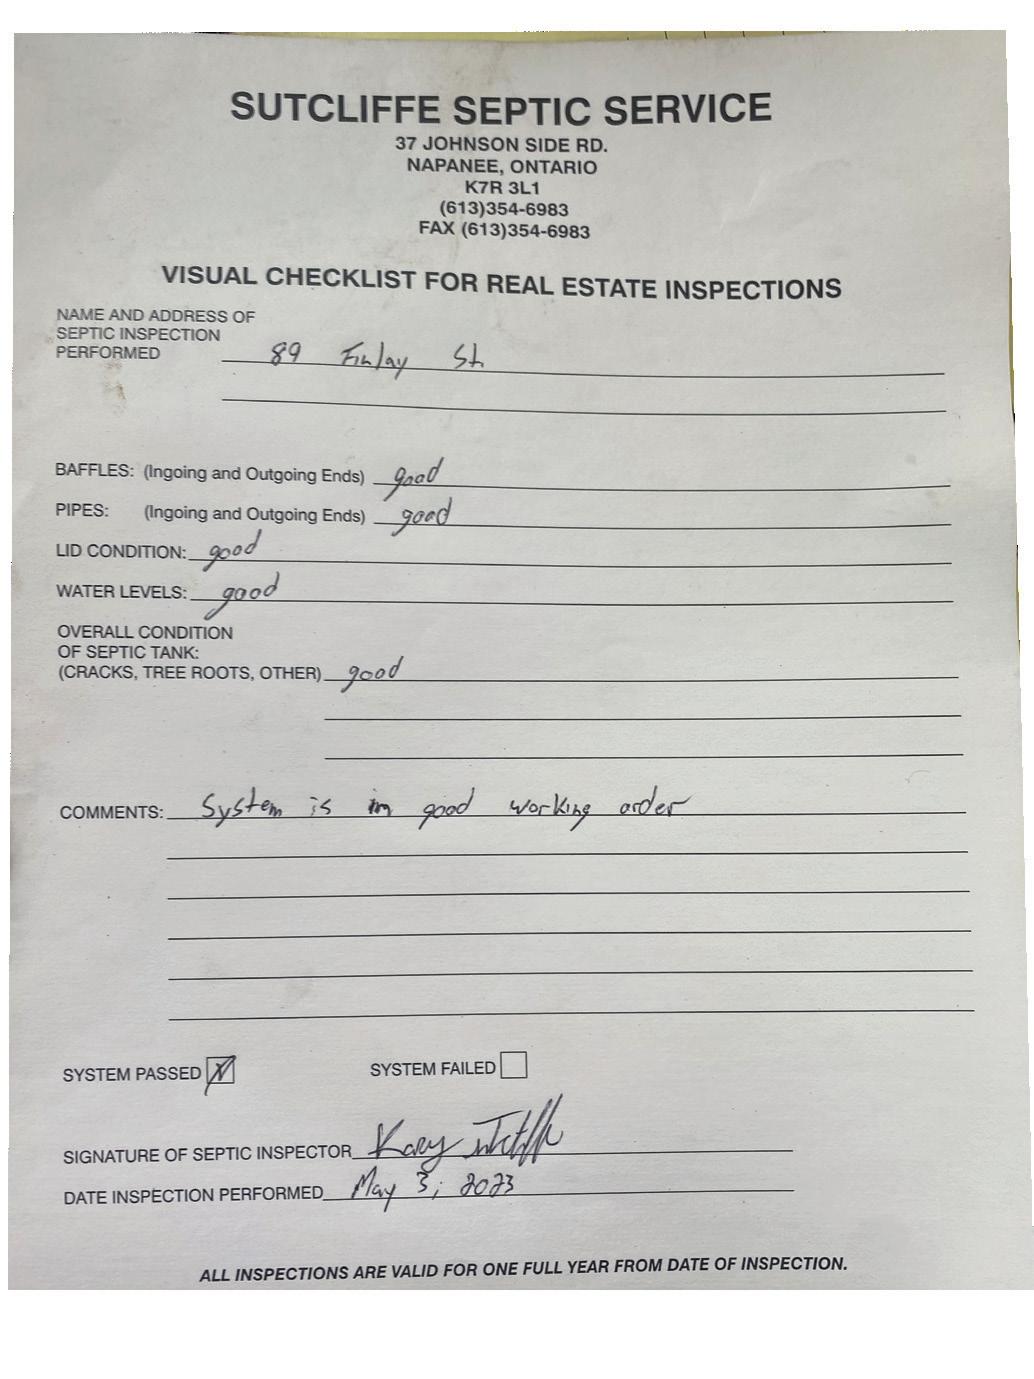 SUTCLIFFE SEPTIC SERVICE
37 JOHNSON SIDE RD.
NAPANEE, ONTARIO
K7R 3L1
(613)354-6983
FAX (613)354-6983
VISUAL CHECKLIST FOR REAL ESTATE INSPECTIONS
NAME AND ADDRESS OF
SEPTIC INSPECTION
PERFORMED 89 Finlay St.
BAFFLES: (Ingoing and Outgoing Ends) good
PIPES: (Ingoing and Outgoing Ends) good
LID CONDITION: good
WATER LEVELS: good
OVERALL CONDITION
OF SEPTIC TANK:
(CRACKS, TREE ROOTS, OTHER) good
COMMENTS: System is in good working order
SYSTEM PASSED SYSTEM FAILED
SIGNATURE OF SEPTIC INSPECTOR
DATE INSPECTION PERFORMED May 3, 2023
ALL INSPECTIONS ARE VALID FOR ONE FULL YEAR FROM DATE OF INSPECTION.